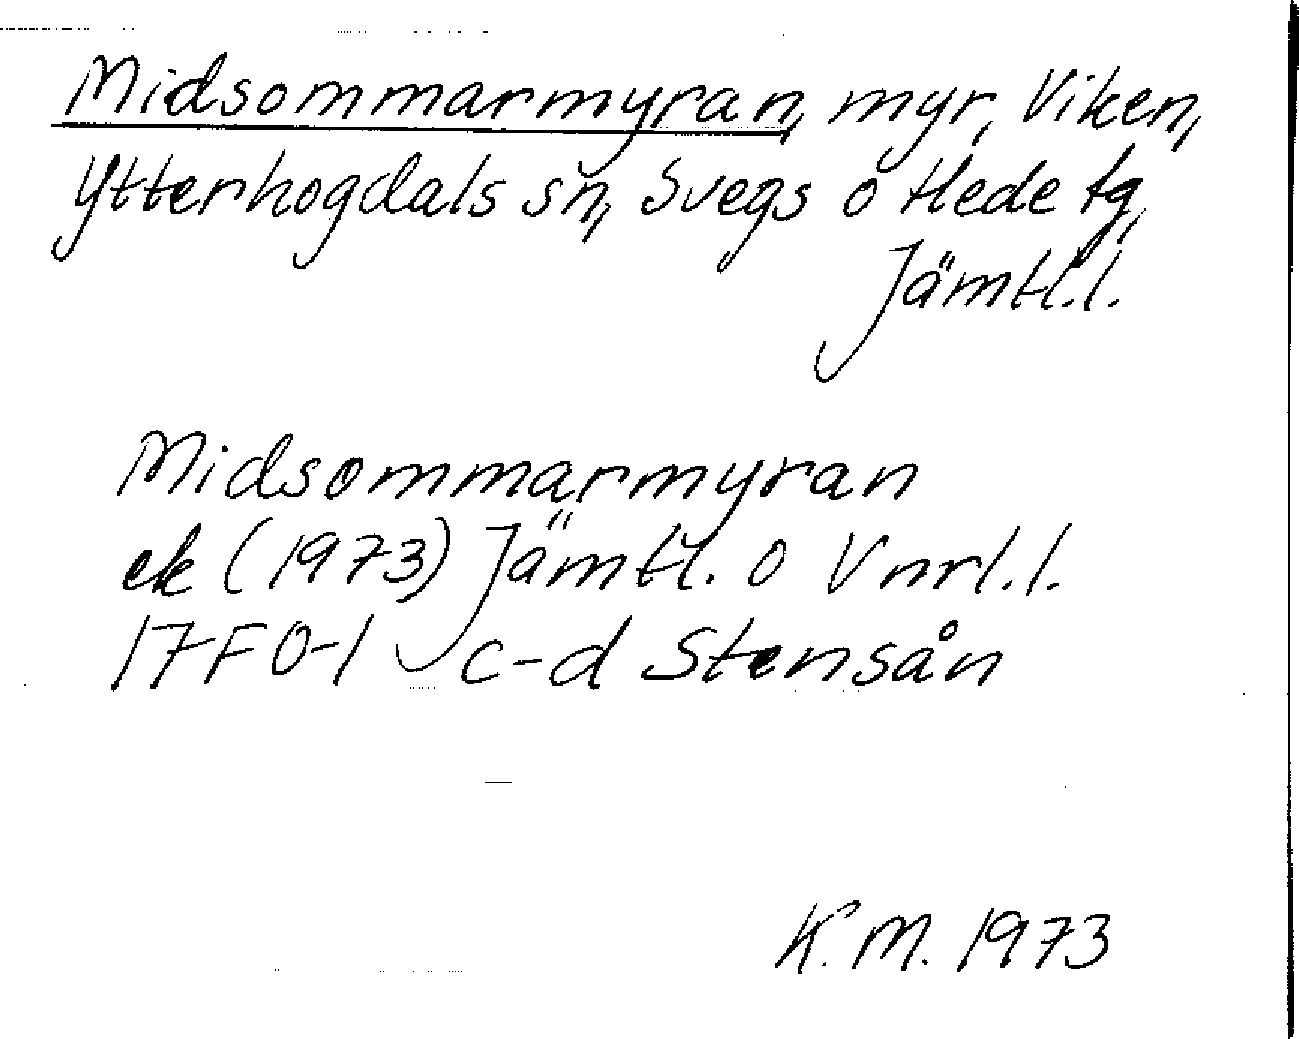 Midsommarmyran, myr, Viken,
Ytterhogdals sn, Svegs o Hede tg,
Jämtl.l.
Midsommarmyran
ek (1973) Jämtl. o Vnrl.l.
17F 0-1 c-d Stensån
K.M. 1973